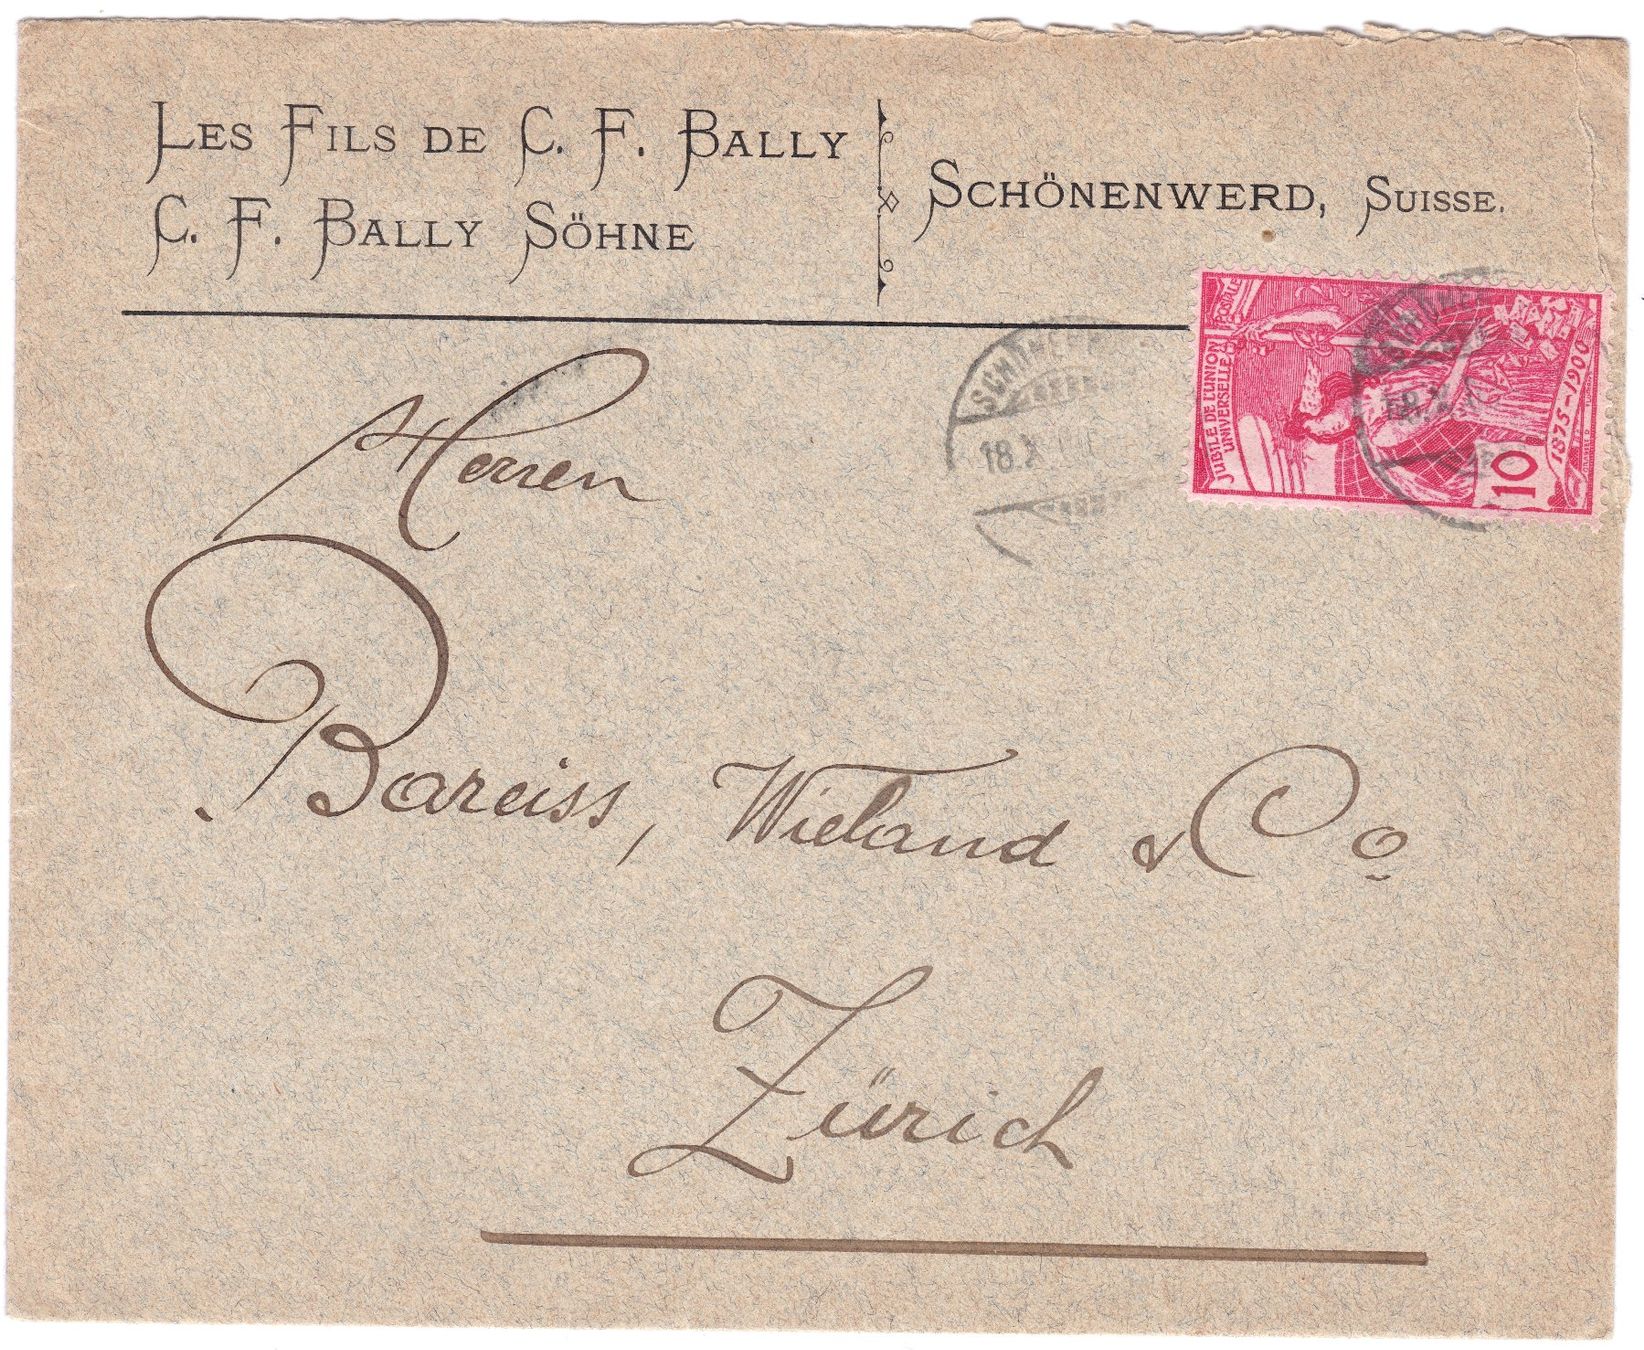 LES FILS DE C. F. BALLY
C. F. BALLY SÖHNE
SCHÖNENWERD, SUISSE.
JUBILÉ DE L'UNION POSTALE
UNIVERSELLE
1875-1900
10
18.X
18.X
Herren
Bareiss, Wieland & Co
Zürich